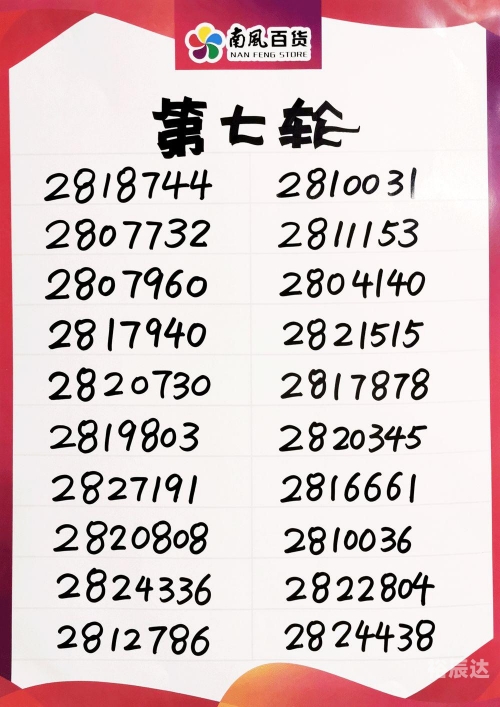 南風百货
NAN FENG STORE
第七轮
2818744 2810031
2807732 2811153
2807960 2804140
2817940 2821515
2820730 2817878
2819803 2820345
2827191 2816661
2820808 2810036
2824336 2822804
2812786 2824438
辰达